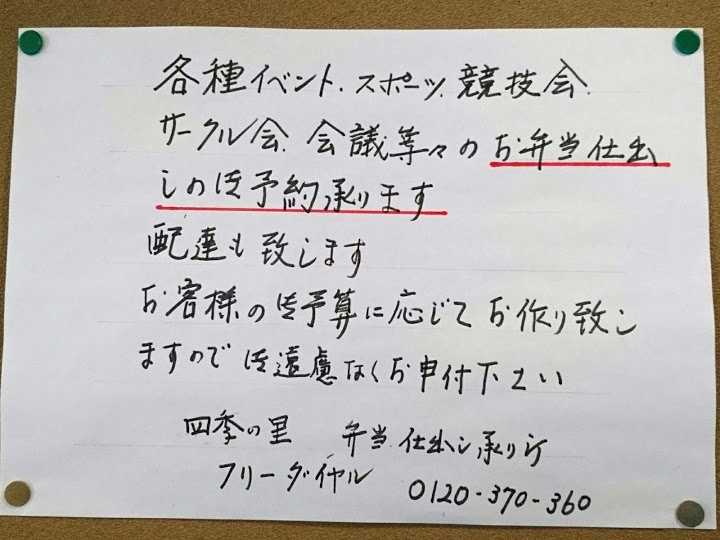 各種イベント.スポーツ.競技会.
サークル会.会議等々のお弁当仕出
しの御予約承ります
配達も致します
お客様の御予算に応じてお作り致し
ますので御遠慮なくお申付下さい
四季の里 弁当仕出し承り所
フリーダイヤル 0120-370-360